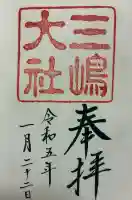 奉拝
三嶋
大社
令和五年
一月二十二日